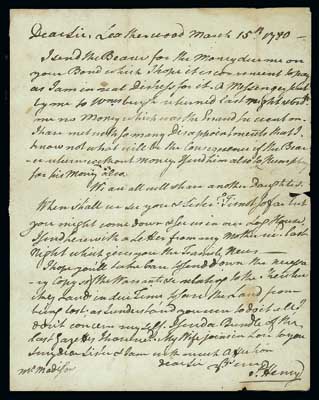 Dear Sir, Leatherwood March 15th 1780 —
I send the Bearer for the Money due me on
your Bond which I hope it is convenient to pay
as I am in great Distress for it. A Messenger sent
by me to Wmsburg returned last night & bro't
me no Money which was the Errand he went on.
I have met with so many Disappointments that I
know not what will be the Consequence of the Bearer
returning without money. I send him also to
for his Money also.
We are all well & have another Daughter.
When shall we see you & Sister?
you might come down & see us in our Log House.
I send herewith a Letter from my Mother recd. last
Night which gives you the Family News.
I hope you'll take care to send down the necessary
Copy of the Warrant &c relating to the
Land in due Time to save the Land from
being lost, as I understand you mean to do it all I
don't concern my self. I send a Bundle of the
last Gazettes. My Wife joins in Love to you
my dear Sister & I am with much Affection
dear Sir yr
P. Henry
Mr. Madison